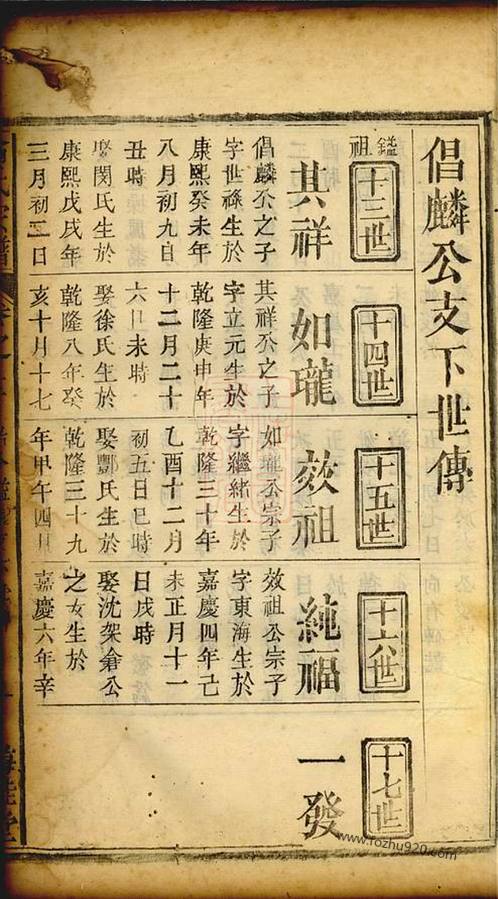 倡麟公支下世傳
鎰祖
十三世
其祥
倡麟公之子
字世祿生於
康熙癸未年
八月初九自
丑時
娶閔氏生於
康熙戊戌年
三月初二日
十四世
如瓏
其祥公之子
字立元生於
乾隆庚申年
十二月二十
六日未時
娶徐氏生於
乾隆八年癸
亥十月十七
十五世
效祖
如瓏公宗子
字繼緒生於
乾隆三十年
乙酉十二月
初五日巳時
娶酆氏生於
乾隆三十九
年甲午四月
十六世
純福
效祖公宗子
字東海生於
嘉慶四年己
未正月十一
日戌時
娶沈架倉公
之女生於
嘉慶六年辛
十七世
一發
www.fozhu920.com